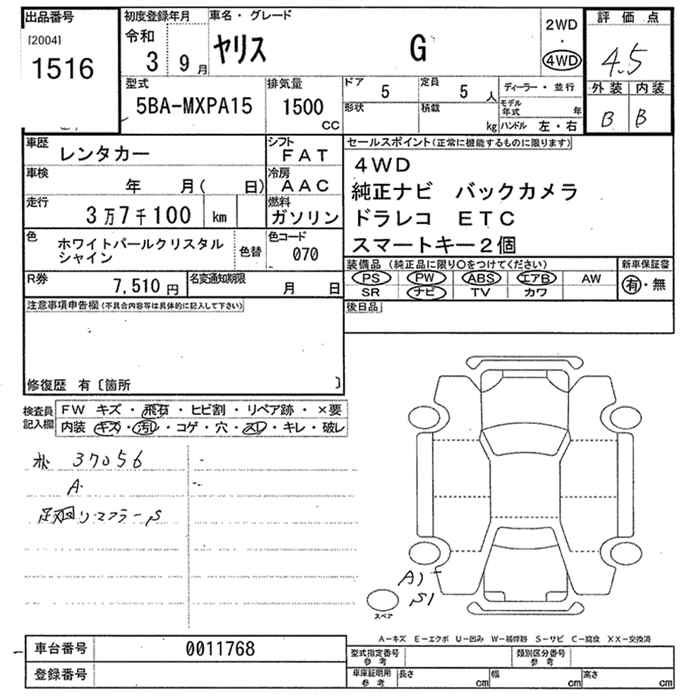 出品番号
[2004]
1516
初度登録年月
令和
3 9月
車名・グレード
ヤリス G
2WD
・
4WD
評価点
4.5
外装 内装
B B
型式
5BA-MXPA15
排気量
1500
CC
ドア
5
定員
5人
形状
積載
kg
ディーラー・並行
モデル年式 年
ハンドル 左・右
車歴
レンタカー
シフト
FAT
車検
年 月( 日)
冷房
AAC
走行
3万7千100 km
燃料
ガソリン
色
ホワイトパールクリスタル
シャイン
色替
色コード
070
R券
7,510円
名変通知期限
月 日
セールスポイント(正常に機能するものに限ります)
4WD
純正ナビ バックカメラ
ドラレコ ETC
スマートキー2個
装備品(純正品に限り○をつけてください)
新車保証書
PS PW ABS エアB AW
SR ナビ TV カワ
有・無
後日品
注意事項申告欄(不具合内容等は具体的に記入して下さい)
修復歴 有〔箇所 〕
検査員
記入欄
FW キズ・飛石・ヒビ割・リペア跡・×要
内装 キズ・汚レ・コゲ・穴・スレ・キレ・破レ
37056
A
足廻リマフラーS
A1
S1
スペア
A-キズ E-エクボ U-凹み W-補修跡 S-サビ C-腐食 XX-交換済
車台番号
0011768
登録番号
型式指定番号
参考
類別区分番号
参考
車庫証明用
参考
長さ cm
幅 cm
高さ cm